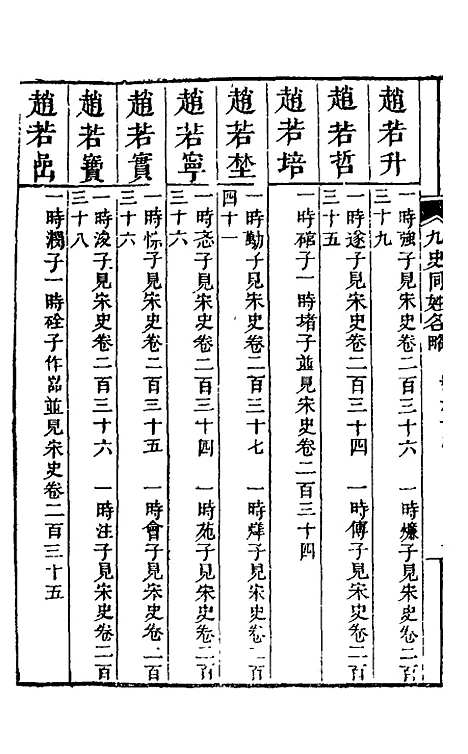 九史同姓名略
趙若升
一時強子見宋史卷二百三十六　一時爌子見宋史卷二百
三十九
趙若哲
一時遂子見宋史卷二百三十四　一時傅子見宋史卷二百
三十五
趙若培
一時䅣子一時堵子並見宋史卷二百三十四
趙若埜
一時勤子見宋史卷二百三十七　一時煒子見宋史卷二百
四十一
趙若寧
一時忞子見宋史卷二百三十四　一時苑子見宋史卷二百
三十六
趙若實
一時悰子見宋史卷二百三十五　一時會子見宋史卷二百
三十六
趙若寶
一時浚子見宋史卷二百三十六　一時注子見宋史卷二百
三十八
趙若嵒
一時瀾子一時硂子作嵓並見宋史卷二百三十五